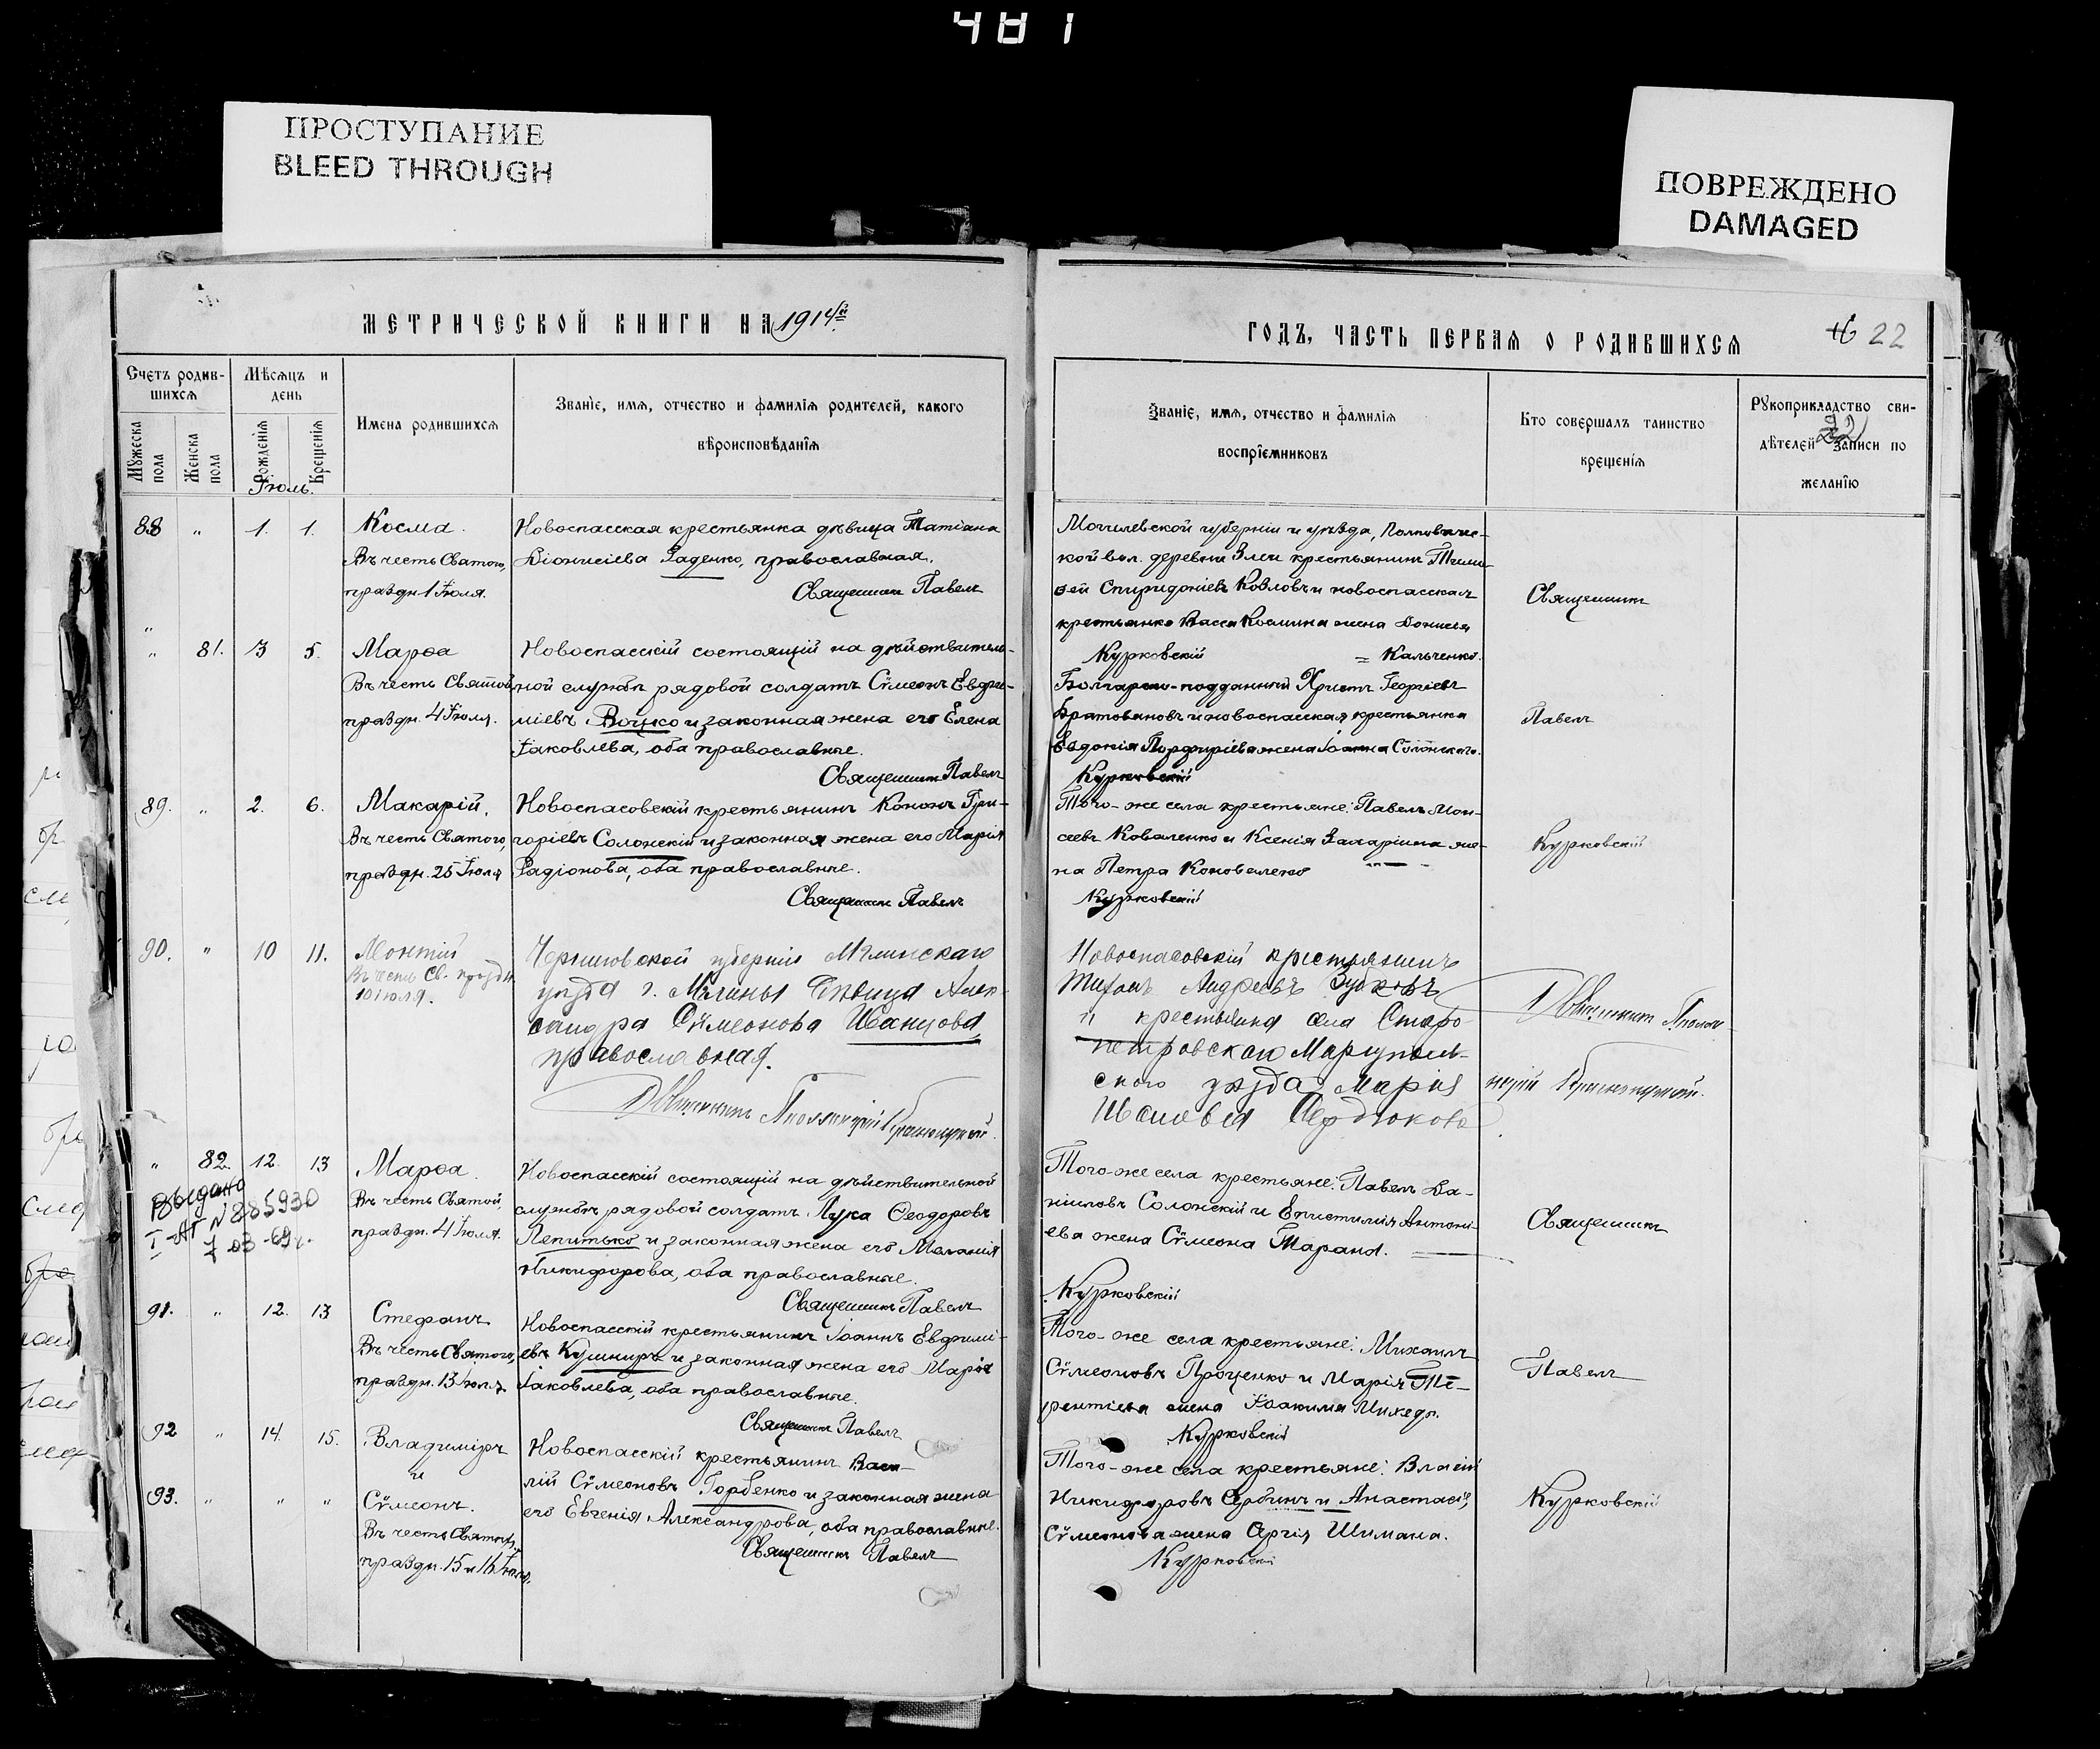 481
ПРОСТУПАНИЕ
BLEED THROUGH
ПОВРЕЖДЕНО
DAMAGED
МЕТРИЧЕСКОЙ КНИГИ НА 1914й
Счетъ родив-
шихся
Мѣсяцъ и
день
Мужеска пола
Женска пола
Рожденія
Крещенія
Имена родившихся
Званіе, имя, отчество и фамилія родителей, какого
вѣроисповѣданія
Іюль.
88 " 1. 1. Косма.
Въ честь Святого,
праздн. 1 Іюля.
Новоспасская крестьянка дѣвица Татіана
Діонисіева Заденко, православная.
Священникъ Павелъ
" 81. 3 5. Марѳа
Въ честь Святой
праздн. 4 Іюля.
Новоспасскій состоящій на дѣйствитель-
ной службѣ рядовой солдатъ Сѵмеонъ Евфи-
міевъ Воцко и законная жена его Елена
Іаковлева, оба православные.
Священникъ Павелъ
89. " 2. 6. Макарій.
Въ честь Святого,
праздн. 25 Іюля
Новоспасовскій крестьянинъ Кононъ Гри-
горіевъ Солонскій и законная жена его Марія
Радіонова, оба православные.
Священникъ Павелъ
90. " 10 11. Леонтій
Въ честь Св. праздн.
10 іюля.
Черниговской губерніи Мглинскаго
уѣзда г. Мглины дѣвица Алек-
сандра Сѵмеонова Иванцова,
православная.
" 82 12. 13 Марѳа.
Въ честь Святой,
праздн. 4 Іюля.
Выдано
I-АГ N 885930
7-03-69г.
Новоспасскій состоящій на дѣйствительной
службѣ рядовой солдатъ Лука Ѳеодоровъ
Лепитько и законная жена его Меланія
Никифорова, оба православные.
Священникъ Павелъ
91. " 12. 13 Стефанъ
Въ честь Святого,
праздн. 13 Іюля
Новоспасскій крестьянинъ Іоаннъ Евфимі-
евъ Кушниръ и законная жена его Марія
Іаковлева, оба православные.
Священникъ Павелъ
92 " 14. 15. Владиміръ
и
93. " " " Сѵмеонъ.
Въ честь Святыхъ,
праздн. 15 и 16 Іюля.
Новоспасскій крестьянинъ Васи-
лій Сѵмеоновъ Горбенко и законная жена
его Евгенія Александрова, оба православные.
Священникъ Павелъ
ГОДЪ, ЧАСТЬ ПЕРВАЯ О РОДИВШИХСЯ
22
Званіе, имя, отчество и фамилія
воспріемниковъ
Кто совершалъ таинство
крещенія
Рукоприкладство сви-
дѣтелей записи по
желанію
Могилевской губерніи и уѣзда,
кой вол. деревни крестьянинъ Тимо-
ѳей Спиридоніевъ Козловъ и новоспасская
крестьянка Васса Космина жена Дениса
Курковскій = Кальченко.
Священникъ
Болгарско-подданный Христъ Георгіевъ
Братовановъ и новоспасская крестьянка
Евдокія Порфиріева жена Іоанна Солонскаго.
Курковскій
Павелъ
Того-же села крестьяне: Павелъ Мои-
сеевъ Коваленко и Ксенія Захаріина же-
на Петра Коноваленко
Курковскій
Курковскій
Новоспасовскій крестьянинъ
Тихонъ Андреевъ Зубковъ
и крестьянка села Старо
петровскаго Маріуполь-
скаго уѣзда Марія
Сердюкова
Того-же села крестьяне: Павелъ Да-
ніиловъ Солонскій и Епистимія Антоні-
ева жена Сѵмеона Таранъ.
Курковскій
Священникъ
Того-же села крестьяне: Михаилъ
Сѵмеоновъ Проценко и Марія Те-
рентіева жена Іоакима Михеды.
Курковскій
Павелъ
Того-же села крестьяне: Власій
Никифоровъ Сербинъ и Анастасія
Сѵмеонова жена Сергія Шимана.
Курковскій
Курковскій